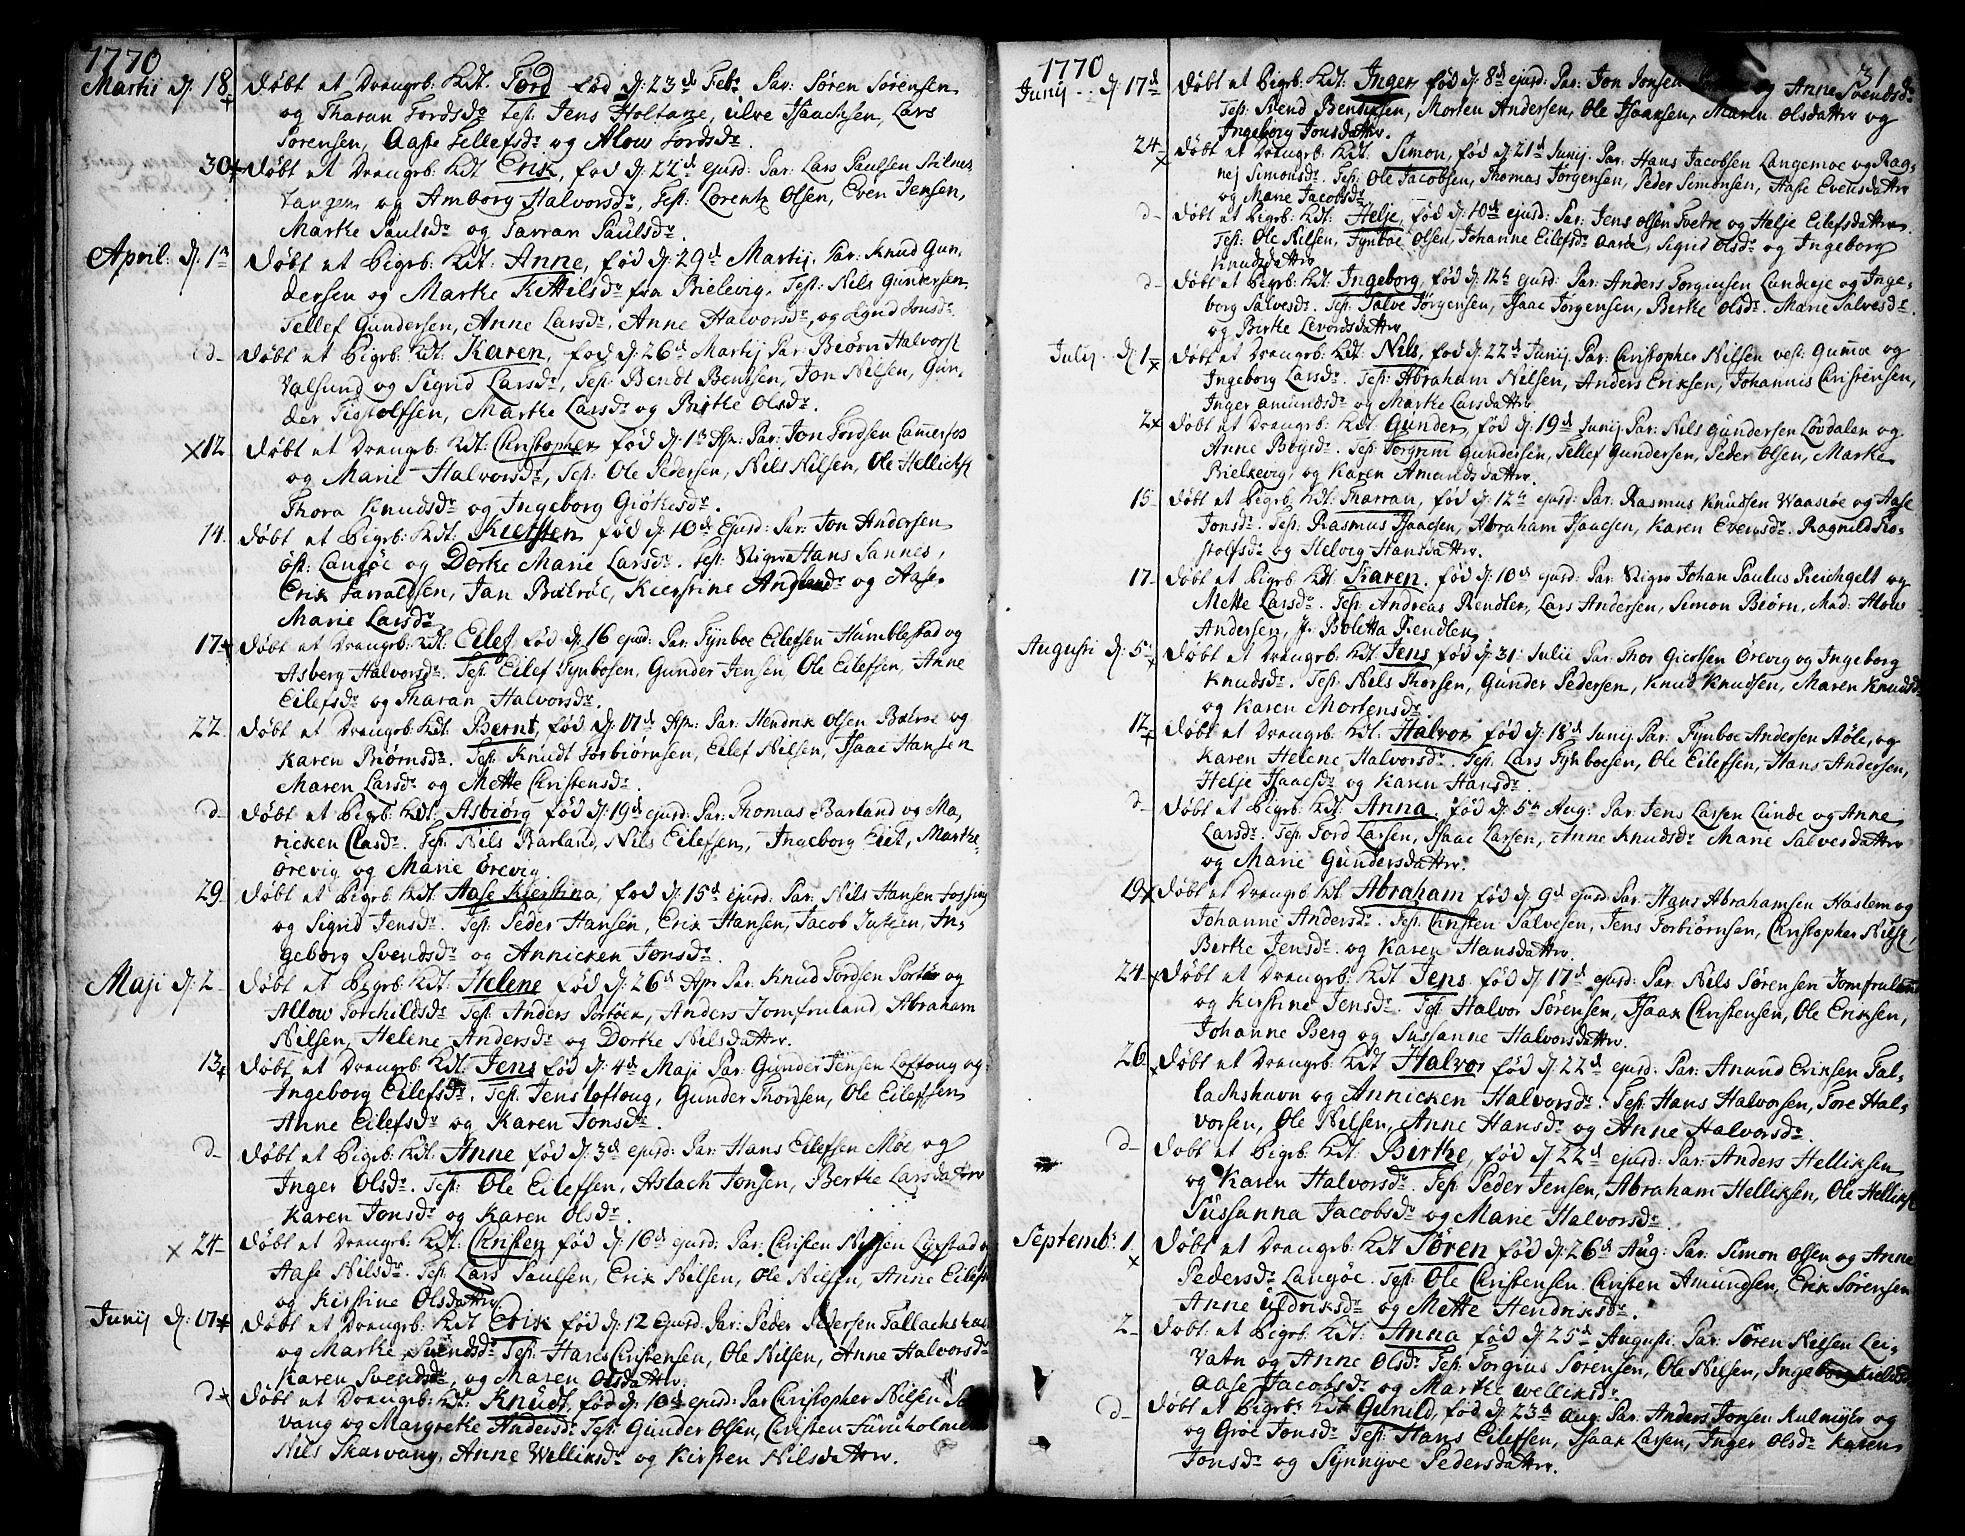 1770
Martij d. 18 døbt et Drengeb: Kdt. Tord fød d: 23de Febr Par: Søren Sørensen
og Tharan Tordsdr Test: Jens Holtane, Isaachsen, Lars
Sørensen, Aase Tellefsdr og Alow Tordsdr.
30 døbt et Drengeb: Kdt Erik, fød d: 22d ejusd: Par: Lars Paulsen Stilnes-
tangen og Amborg Halvorsdr, Test: Lorentz Olsen, Even Jensen,
Marte Paulsdr og Tarran Paulsdr.
April d. 1n døbt et Pigeb: Kdt: Anne, fød d: 29d Martij. Par: Knud Gun-
dersen og Marte Kittilsdr fra Bielevig. Test: Nils Gundersen
Tellef Gundersen, Anne Larsdr. Anne Halvorsdr, og Sigrid Jonsdr
d- døbt et Pigeb: Kdt: Karen, fød d: 26d Martij Par: Beiørn Halvors
Valsund og Sigrid Larsdr, Test: Bendt Bentsen, Jon Nilsen, Gun-
der Tistolfsen, Marthe Larsdr og Birthe Olsdr.
12 døbt et Drengeb: Kdt: Christopher fød d: 1n Apr: Par: Jon Tordsen
og Marie Halvorsdr, Test: Ole Pedersen, Nils Nilsen, Ole Hellichs
Thora Knudsdr og Ingeborg Giøthesdr.
14. døbt et Pigeb: Kdt: Kiersten fød d: 10de Ejusd: Par: Jon Andersen
øst: Langøe og Dorthe Marie Larsdr. Test: Hans Sannes,
Erik Taraldsen, Jan Balrøe, Kierstine og Aase
Marie Larsdr.
17 døbt et Drengeb: Kdt: Eilef fød d: 16 ejusd: Par: Tynboe Eilefsen Humblestad og
Asberg Halvorsdr. Test: Eilef Tynbosen, Gunder Jensen, Ole Eilefsen, Anne
Eilefsdr og Tharan Halvorsdr.
22. døbt et Drengeb: Kdt: Bernt, fød d: 17d Apr: Par: Hendrik Olsen Balrøe og
Karen Biørnsdr. Test Knudt Torbiørnsen, Eilef Nilsen, Isaac Hansen
Maren Larsdr og Mette Christensdr.
d- døbt et Pigeb: Kdt: Asbiørg fød d: 19d ejusd: Par: Thomas Barland og Ma-
ricken Clasdr. Test: Nils Barland, Nils Eilefsen, Ingeborg Eiet, Marthe
Ørevig og Marie Ørevig.
29. døbt et Pigeb: Kdt: Aase Kiestina, fød d: 15d ejusd: Par: Nils Hansen Fossing
og Sigrid Jensdr. Test: Peder Hansen, Erik Hansen, Jacob Justsen, In-
geborg Svendsdr og Annicken Jonsdr.
Maji d: 2 døbt et Pigeb: Kdt: Helene fød d: 26d Apr Par: Knud Tordsen Portør og
Allow Torchildsdr Test: Anders Torbøen, Anders Jomfruland, Abraham
Nilsen, Helene Andersdr og Dorthe Nilsdatter.
13 døbt et Drengeb: Kdt: Jens fød d: 4d Maji Par: Gunder Jensen Loftoug og
Ingeborg Eilefsdr. Test: Jens Loftoug, Gunder Thordsen, Ole Eilefsen
Anne Eilefsdr og Karen Jonsdr.
d- døbt et Pigeb: Kdt: Anne fød d: 3d ejusd: Par: Hans Eilefsen Møe, og
Inger Olsdr. Test: Ole Eilefsen, Aslach Jonsen, Berthe Larsdatter
Karen Jonsdr og Karen Olsdr.
24 døbt et Drengeb: Kdt: Christen fød d: 16d ejusd: Par: Christen Nilsen og
Aase Nilsdr. Test: Lars Paulsen, Erik Nilsen, Ole Nilsen, Anne Eilefsdr
og Kirstine Olsdatter.
Junij d: 17 døbt et Drengeb: Kdt Erik fød d: 12 Ejusd: Par: Peder Pedersen Tallachshavn
og Marthe Svendsdr Test: Hans Christensen, Ole Nilsen, Anne Halvorsdr
Karen Svendsdr, og Maren Olsdatter.
d- døbt et Drengeb: Kdt: Knudt, fød d: 10d ejusd: Par Christopher Nilsen
vang og Margrethe Andersdr Test: Gunder Olsen, Christen Furuholmen
Nils Skarvang, Anne Welliksdr og Kirsten Nilsdatter.
1770 31
Junij d: 17d døbt et Pigeb: Kdt: Inger fød d: 8d ejusd: Par: Jon Jonsen og Anne Svendsdr
Test: Svend Bentsen, Morten Andersen, Ole Isaaksen, Maren Olsdatter og
Ingeborg Jonsdatter.
24 døbt et Drengeb: Kdt: Simon, fød d: 21d Junij. Par: Hans Jacobsen Langemoe og Rag-
nej Simonsdr. Test: Ole Jacobsen, Thomas Jørgensen, Peder Simonsen, Aase Evensdatter
og Marie Jacobsdr.
d- døbt et Pigeb: Kdt: Helje, fød d: 10d ejusd: Par: Jens Olsen Tvetre og Helje Eilefsdatter
Test: Ole Nilsen, Tynboe Olsen, Johanne Eilefsdr Aarøe, Sigrid Olsdr og Ingeborg
Knudsdatter
d- døbt et Pigeb: Kdt: Ingeborg, fød d: 12te ejusd: Par: Anders Jørgensen Lundeje og Inge-
borg Salvesdr. Test: Salve Jørgensen, Isaac Jørgensen, Berthe Olsdr. Marie Salvesdr.
og Birthe Levordsdatter.
Julij d: 1 døbt et Drengeb: Kdt: Nils, fød d: 22d Junij. Par: Christopher Nilsen vest: Gumøe og
Ingeborg Larsdr. Test: Abraham Nilsen, Anders Eriksen, Johannis Christensen,
Inger Amundsdr og Marthe Larsdatter.
2 døbt et Drengeb: Kdt: Gunder, fød d: 19d Junij. Par: Nils Gundersen Løvdalen og
Anne Boysdr. Test: Torgrim Gundersen, Tellef Gundersen, Peder Olsen, Marthe
Bielkevig, og Karen Amundsdatter.
15 døbt et Pigeb: Kdt: Tharran, fød d: 12te ejusd: Par: Rasmus Knudsen Waasøe og Aase
Jonsdr. Test: Rasmus Isaacsen, Abraham Isaacsen, Karen Evensdr. Ragnild Ro-
stolfsdr og Helvig Hansdatter.
17- døbt et Pigeb: Kdt: Karen, fød d: 10d ejusd: Par: Johan Paulus Reichgelt og
Mette Larsdr. Test: Andreas Rendler, Lars Andersen, Simon Beiørn, Mad: Alow
Andersen, Jr. Boletta Rendlen
Augusti d: 5 døbt et Drengeb: Kdt: Jens fød d: 31: Julii Par: Thor Giertsen Ørevig og Ingeborg
Knudsdr. Test: Nils Thorsen, Gunder Pedersen, Knud Knudsen, Maren Knudsdr
og Karen Mortensdr.
12 døbt et Drengeb: Kdt: Halvor fød d: 18d Junij Par: Tynboe Andersen Støle, og
Karen Helene Halvorsdr. Test: Lars Tynboesen, Ole Eilefsen, Hans Andersen,
Helje Isaacsdr og Karen Hansdr.
d- døbt et Pigeb: Kdt: Anna, fød d: 5n Aug: Par: Jens Larsen Lunde og Anne
Larsdr. Test: Tord Larsen, Isaac Larsen, Anne Knudsdr Marie Salvesdatter
og Marie Gundersdatter.
19 døbt et Drengeb: Kdt: Abraham fød d: 9d ejusd: Par: Hans Abrahamsen Haslem og
Johanne Andersdr. Test: Christen Salvesen, Jens Torbiørnsen, Christopher Nils,
Berthe Jensdr. og Karen Hansdatter.
24 døbt et Drengeb: Kdt Jens fød d: 17d ejusd: Par: Nils Sørensen Jomfruland
og Kirstine Jensdr. Test: Halvor Sørensen, Isaak Christensen, Ole Eriksen,
Johanne Berg og Sussanne Halvorsdatter.
26 døbt et Drengeb: Kdt Halvor fød d: 22d ejusd: Par: Anund Eriksen Tal-
lachshavn og Annicken Halvorsdr. Test: Hans Halvorsen, Tore Hal-
vorsen, Ole Nilsen, Anne Hansdr og Anne Halvorsdr.
d- døbt et Pigeb: Kdt: Birthe, fød d: 22d ejusd: Par: Anders Helliksen
og Karen Halvorsdr. Test Peder Jensen, Abraham Helliksen, Ole Helliks
Sussanna Jacobsdr og Marie Halvorsdr.
Septembr 1. døbt et Drengeb: Kdt Søren fød d: 26d Aug: Par: Simon Olsen og Anne
Pedersdr Langøe. Test: Ole Christensen. Christen Amundsen, Erik Sørensen
Anne Ufdriksdr og Mette Hendriksdr.
2 døbt et Pigeb: Kdt: Anna fød d: 25d Augusti. Par: Søren Nilsen Lei-
Vatn og Anne Olsdr Test: Torgius Sørensen, Ole Nilsen, Ingeborg
Aase Jacobsdr og Marthe Welliksdr
d- døbt et Pigeb: Kdt Gunild, fød d: 23d Aug: Par: Anders Jonsen Kulmyhr og
og Groe Jonsdr Test: Hans Eilefsen, Isaak Larsen, Inger Olsdr Karen
Jonsdr og Synnyve Pedersdatter.